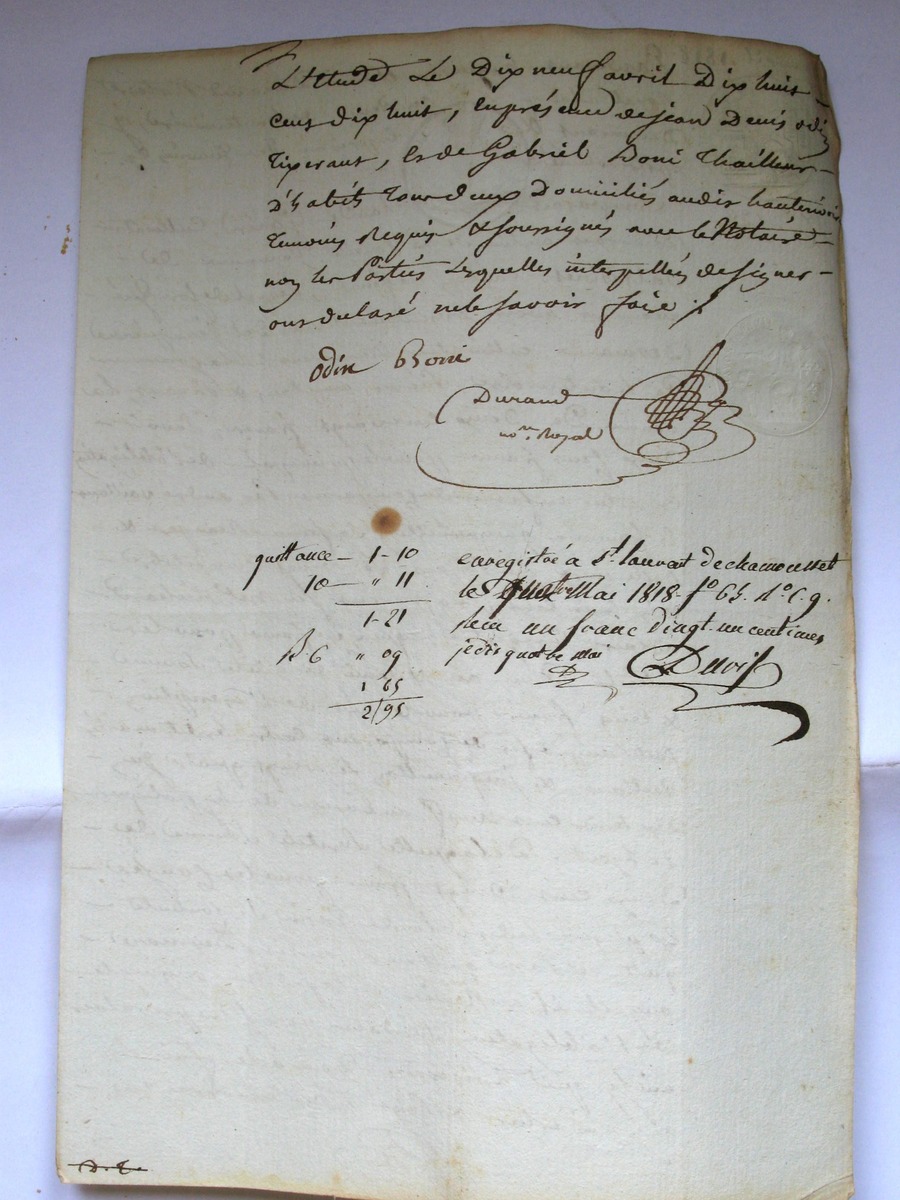 L'etude Le Dix neuf avril Dix huit
cent dix huit, en présence de jean Denis odin
Tixerant, et de Gabriel Boni Thailleur
D'habits Tous deux Domiciliés audit hauterivoire
Temoins Requis & soussignés avec le Notaire
non les Parties Lesquelles interpellés de signer
ont déclaré ne le savoir faire ./.
odin Boni
Durand
no.re Royal
quittance — 1-10
10 — " 11
1-21
" 09
1 65
2/95
enregistré a St. laurent de chamousset
le quatre Mai 1818 fo 65. Ro C. 9.
Recu un franc vingt-un centimes
je dis quatre Mai